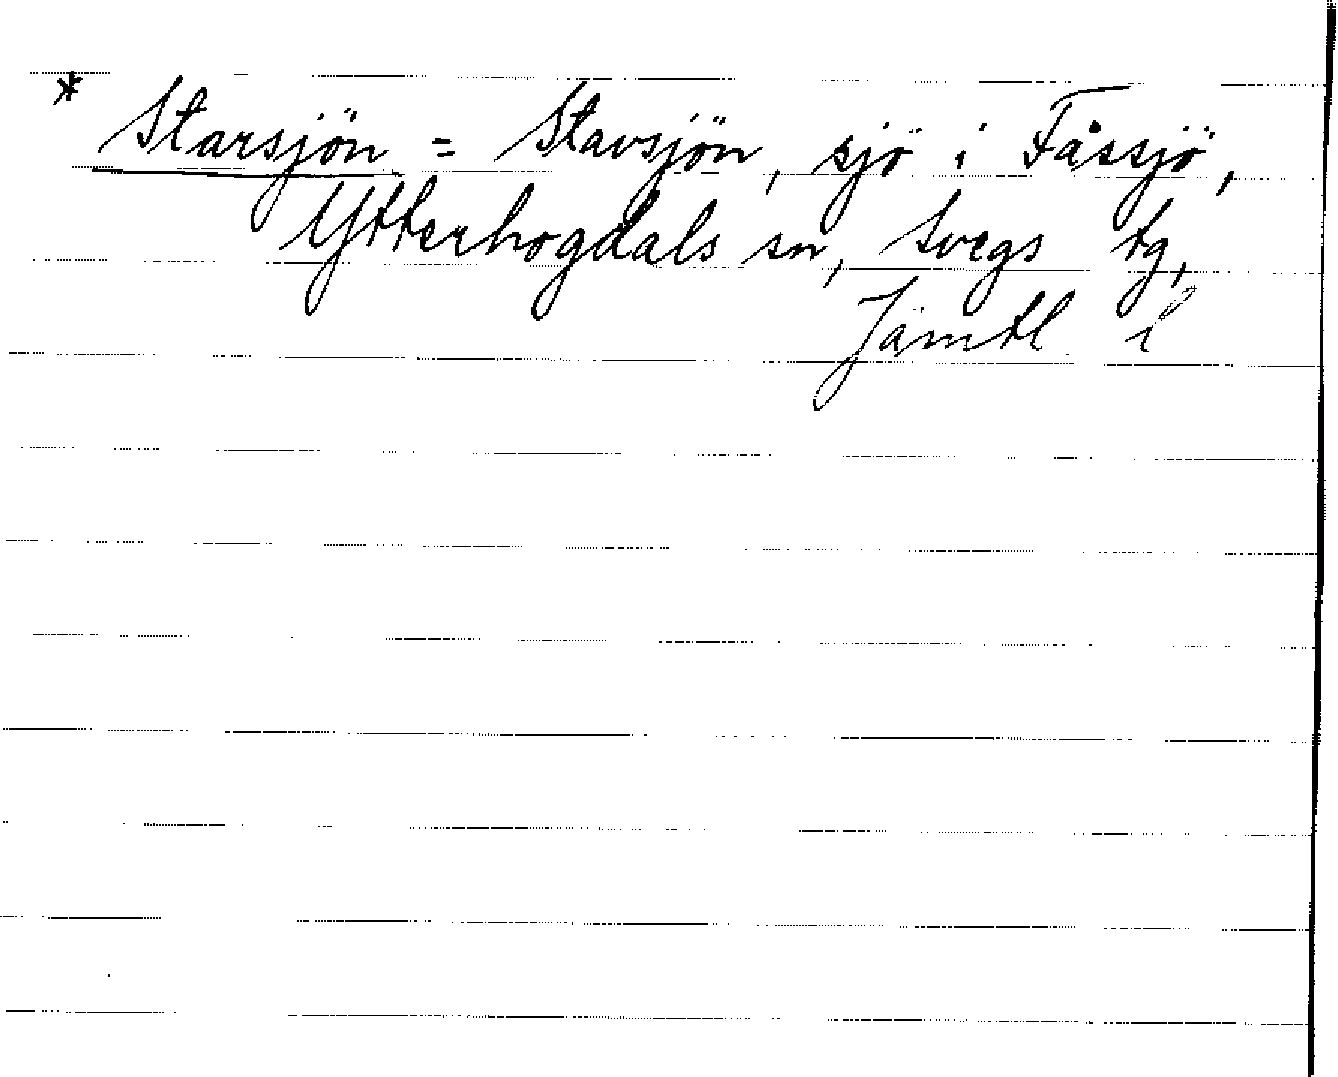 * Starsjön = Stavsjön, sjö i Fåssjö,
Ytterhogdals sn, Svegs tg,
Jämtl l